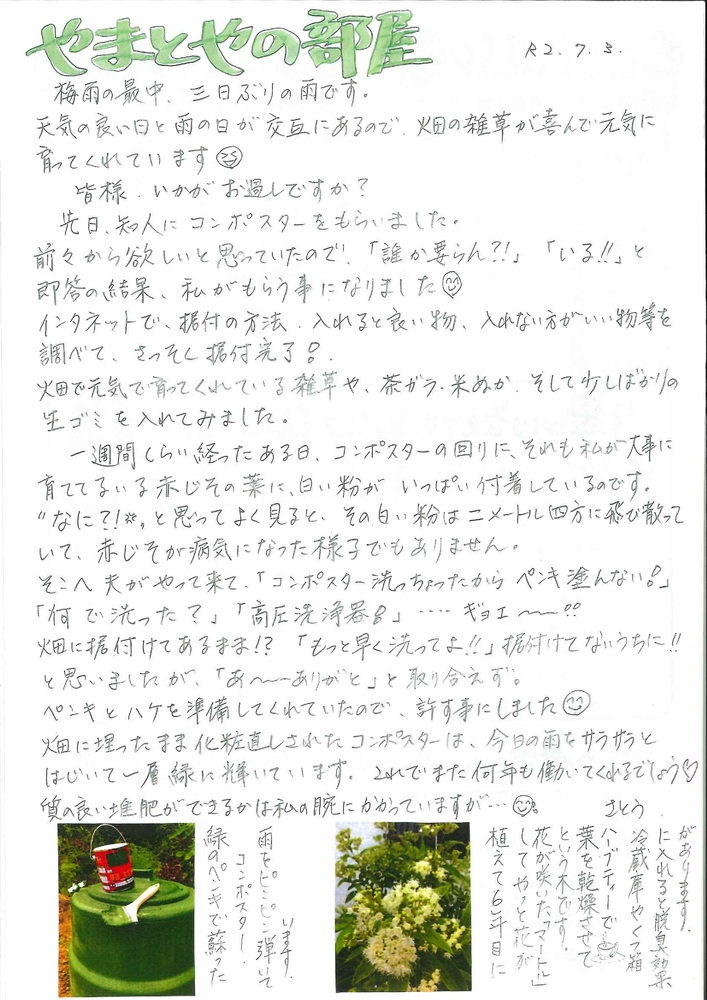 やまとやの部屋
R2.7.3.
梅雨の最中、三日ぶりの雨です。
天気の良い日と雨の日が交互にあるので、畑の雑草が喜んで元気に
育ってくれています
皆様、いかがお過しですか?
先日、知人にコンポスターをもらいました。
前々から欲しいと思っていたので、「誰か要らん?!」「いる!!」と
即答の結果、私がもらう事になりました
インタネットで、据付の方法、入れると良い物、入れない方がいい物等を
調べて、さっそく据付完了!
畑で元気で育ってくれている雑草や、茶ガラ・米ぬか、そして少しばかりの
生ゴミを入れてみました。
一週間くらい経ったある日、コンポスターの回りに、それも私が大事に
育ててるいる赤じその葉に、白い粉がいっぱい付着しているのです。
"なに?!"と思ってよく見ると、その白い粉は二メートル四方に飛び散って
いて、赤じそが病気になった様子でもありません。
そこへ夫がやって来て、「コンポスター洗っちゃったからペンキ塗んない!」
「何で洗った?」「高圧洗浄器!」‥‥ギョエ〜〜!!
畑に据付けてあるまま!? 「もっと早く洗ってよ!!」据付けてないうちに!!
と思いましたが、「あ〜〜ありがと」と取り合えず。
ペンキとハケを準備してくれていたので、許す事にしました
畑に埋ったまま化粧直しされたコンポスターは、今日の雨をサラサラと
はじいて一層緑に輝いています。これでまた何年も働いてくれるでしょう♡
質の良い堆肥ができるかは私の腕にかかっていますが…
さとう
緑のペンキで蘇った
コンポスター!
雨をピンピン弾いて
います。
植えて6年目に
してやっと花が
花が咲いた「マートル」
という木です。
葉を乾燥させて
ハーブティーで
冷蔵庫やくつ箱
に入れると脱臭効果
があります。